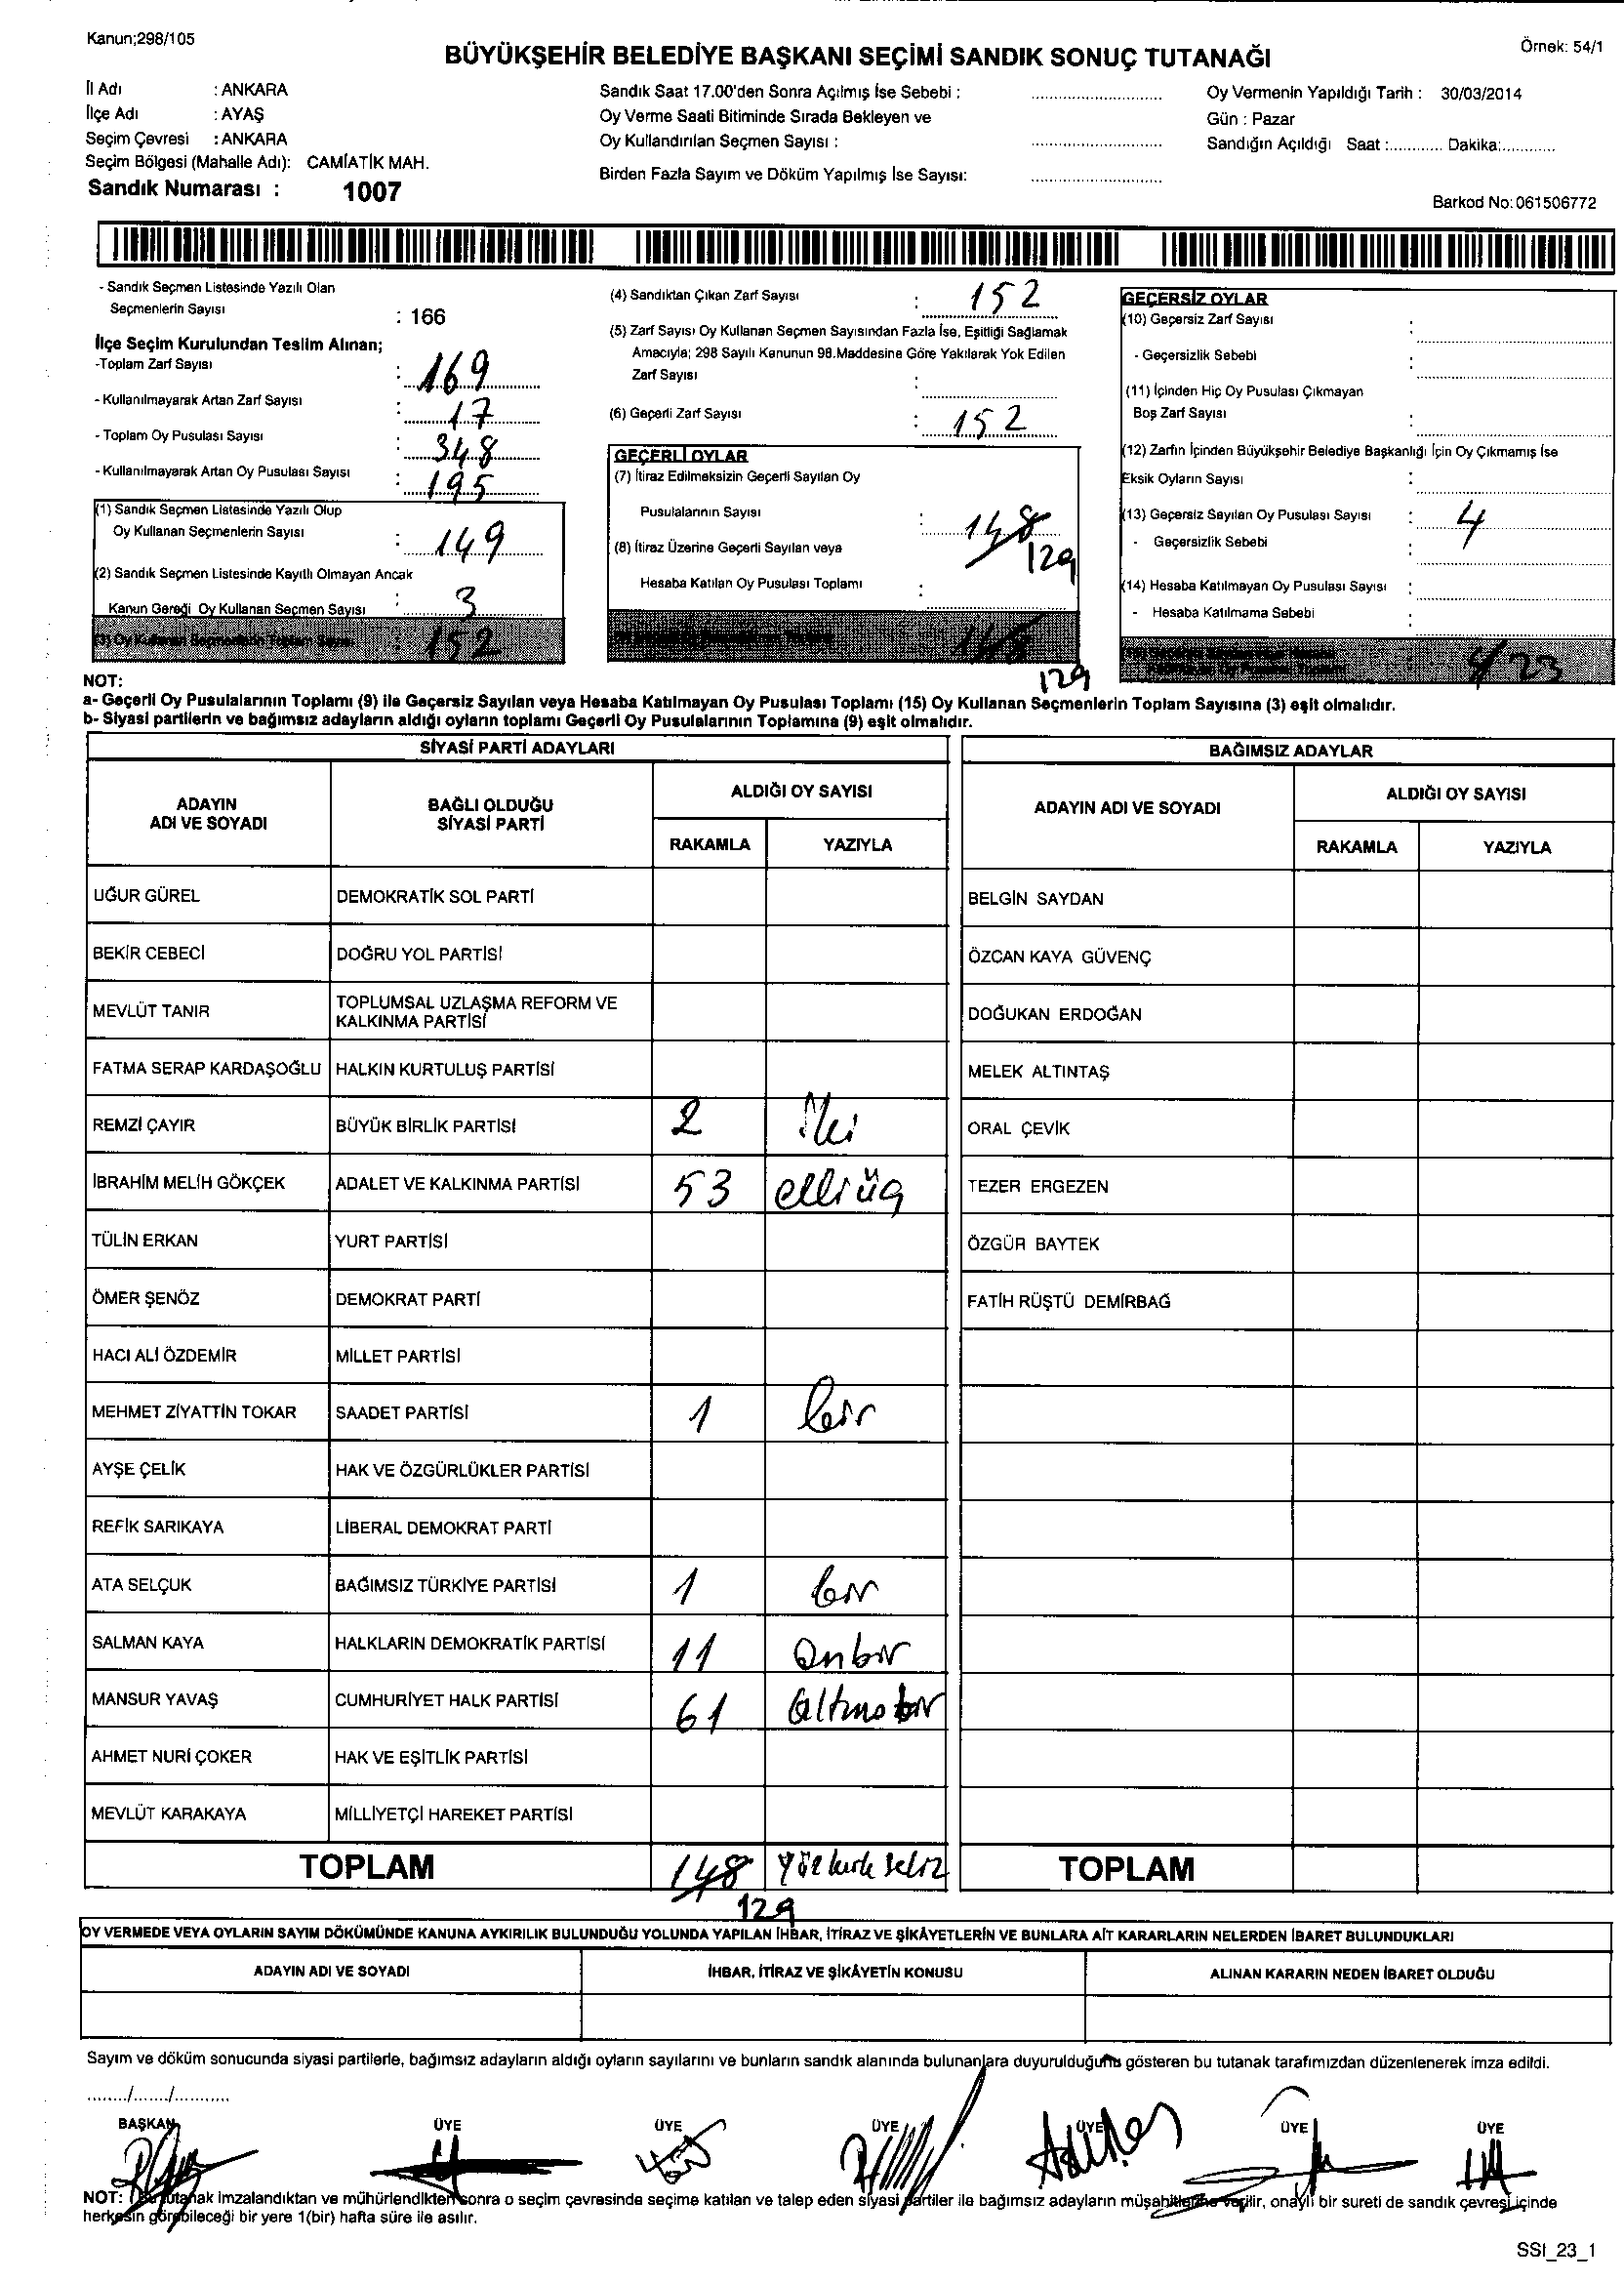 Kanun;298/105
Örnek: 54/1
BÜYÜKŞEHİR BELEDİYE BAŞKANI SEÇİMİ SANDIK SONUÇ TUTANAĞI
İl Adı : ANKARA
İlçe Adı : AYAŞ
Seçim Çevresi : ANKARA
Seçim Bölgesi (Mahalle Adı): CAMİATİK MAH.
Sandık Numarası : 1007
Sandık Saat 17.00'den Sonra Açılmış İse Sebebi :
Oy Verme Saati Bitiminde Sırada Bekleyen ve
Oy Kullandırılan Seçmen Sayısı :
Birden Fazla Sayım ve Döküm Yapılmış İse Sayısı:
Oy Vermenin Yapıldığı Tarih : 30/03/2014
Gün : Pazar
Sandığın Açıldığı Saat :........... Dakika:...........
Barkod No:061506772
- Sandık Seçmen Listesinde Yazılı Olan
Seçmenlerin Sayısı : 166
İlçe Seçim Kurulundan Teslim Alınan;
-Toplam Zarf Sayısı : 169
- Kullanılmayarak Artan Zarf Sayısı : 17
- Toplam Oy Pusulası Sayısı : 348
- Kullanılmayarak Artan Oy Pusulası Sayısı : 195
(1) Sandık Seçmen Listesinde Yazılı Olup
Oy Kullanan Seçmenlerin Sayısı : 149
(2) Sandık Seçmen Listesinde Kayıtlı Olmayan Ancak
Kanun Gereği Oy Kullanan Seçmen Sayısı : 3
(3) Oy Kullanan Seçmenlerin Toplam Sayısı : 152
(4) Sandıktan Çıkan Zarf Sayısı : 152
(5) Zarf Sayısı Oy Kullanan Seçmen Sayısından Fazla İse, Eşitliği Sağlamak
Amacıyla; 298 Sayılı Kanunun 98.Maddesine Göre Yakılarak Yok Edilen
Zarf Sayısı :
(6) Geçerli Zarf Sayısı : 152
GEÇERLİ OYLAR
(7) İtiraz Edilmeksizin Geçerli Sayılan Oy
Pusulalarının Sayısı : 148
129
(8) İtiraz Üzerine Geçerli Sayılan veya
Hesaba Katılan Oy Pusulası Toplamı :
148
129
GEÇERSİZ OYLAR
(10) Geçersiz Zarf Sayısı :
- Geçersizlik Sebebi :
(11) İçinden Hiç Oy Pusulası Çıkmayan
Boş Zarf Sayısı :
(12) Zarfın İçinden Büyükşehir Belediye Başkanlığı İçin Oy Çıkmamış İse
Eksik Oyların Sayısı :
(13) Geçersiz Sayılan Oy Pusulası Sayısı : 4
- Geçersizlik Sebebi :
(14) Hesaba Katılmayan Oy Pusulası Sayısı :
- Hesaba Katılmama Sebebi :
23
NOT:
a- Geçerli Oy Pusulalarının Toplamı (9) ile Geçersiz Sayılan veya Hesaba Katılmayan Oy Pusulası Toplamı (15) Oy Kullanan Seçmenlerin Toplam Sayısına (3) eşit olmalıdır.
b- Siyasi partilerin ve bağımsız adayların aldığı oyların toplamı Geçerli Oy Pusulalarının Toplamına (9) eşit olmalıdır.
SİYASİ PARTİ ADAYLARI
ADAYIN ADI VE SOYADI
BAĞLI OLDUĞU SİYASİ PARTİ
ALDIĞI OY SAYISI
RAKAMLA YAZIYLA
UĞUR GÜREL DEMOKRATİK SOL PARTİ
BEKİR CEBECİ DOĞRU YOL PARTİSİ
MEVLÜT TANIR TOPLUMSAL UZLAŞMA REFORM VE KALKINMA PARTİSİ
FATMA SERAP KARDAŞOĞLU HALKIN KURTULUŞ PARTİSİ
REMZİ ÇAYIR BÜYÜK BİRLİK PARTİSİ 2 İki
İBRAHİM MELİH GÖKÇEK ADALET VE KALKINMA PARTİSİ 53 elliüç
TÜLİN ERKAN YURT PARTİSİ
ÖMER ŞENÖZ DEMOKRAT PARTİ
HACI ALİ ÖZDEMİR MİLLET PARTİSİ
MEHMET ZİYATTİN TOKAR SAADET PARTİSİ 1 bir
AYŞE ÇELİK HAK VE ÖZGÜRLÜKLER PARTİSİ
REFİK SARIKAYA LİBERAL DEMOKRAT PARTİ
ATA SELÇUK BAĞIMSIZ TÜRKİYE PARTİSİ 1 bir
SALMAN KAYA HALKLARIN DEMOKRATİK PARTİSİ 11 Onbir
MANSUR YAVAŞ CUMHURİYET HALK PARTİSİ 61 Altmışbir
AHMET NURİ ÇOKER HAK VE EŞİTLİK PARTİSİ
MEVLÜT KARAKAYA MİLLİYETÇİ HAREKET PARTİSİ
TOPLAM 148 Yüz kırk sekiz
129
BAĞIMSIZ ADAYLAR
ADAYIN ADI VE SOYADI
ALDIĞI OY SAYISI
RAKAMLA YAZIYLA
BELGİN SAYDAN
ÖZCAN KAYA GÜVENÇ
DOĞUKAN ERDOĞAN
MELEK ALTINTAŞ
ORAL ÇEVİK
TEZER ERGEZEN
ÖZGÜR BAYTEK
FATİH RÜŞTÜ DEMİRBAĞ
TOPLAM
OY VERMEDE VEYA OYLARIN SAYIM DÖKÜMÜNDE KANUNA AYKIRILIK BULUNDUĞU YOLUNDA YAPILAN İHBAR, İTİRAZ VE ŞİKÂYETLERİN VE BUNLARA AİT KARARLARIN NELERDEN İBARET BULUNDUKLARI
ADAYIN ADI VE SOYADI İHBAR, İTİRAZ VE ŞİKÂYETİN KONUSU ALINAN KARARIN NEDEN İBARET OLDUĞU
Sayım ve döküm sonucunda siyasi partilerle, bağımsız adayların aldığı oyların sayılarını ve bunların sandık alanında bulunanlara duyurulduğunu gösteren bu tutanak tarafımızdan düzenlenerek imza edildi.
......../......./...........
BAŞKAN ÜYE ÜYE ÜYE ÜYE ÜYE ÜYE
NOT: Bu tutanak imzalandıktan ve mühürlendikten sonra o seçim çevresinde seçime katılan ve talep eden siyasi partiler ile bağımsız adayların müşahitlerine verilir, onaylı bir sureti de sandık çevresi içinde
herkesin görebileceği bir yere 1(bir) hafta süre ile asılır.
SSI_23_1